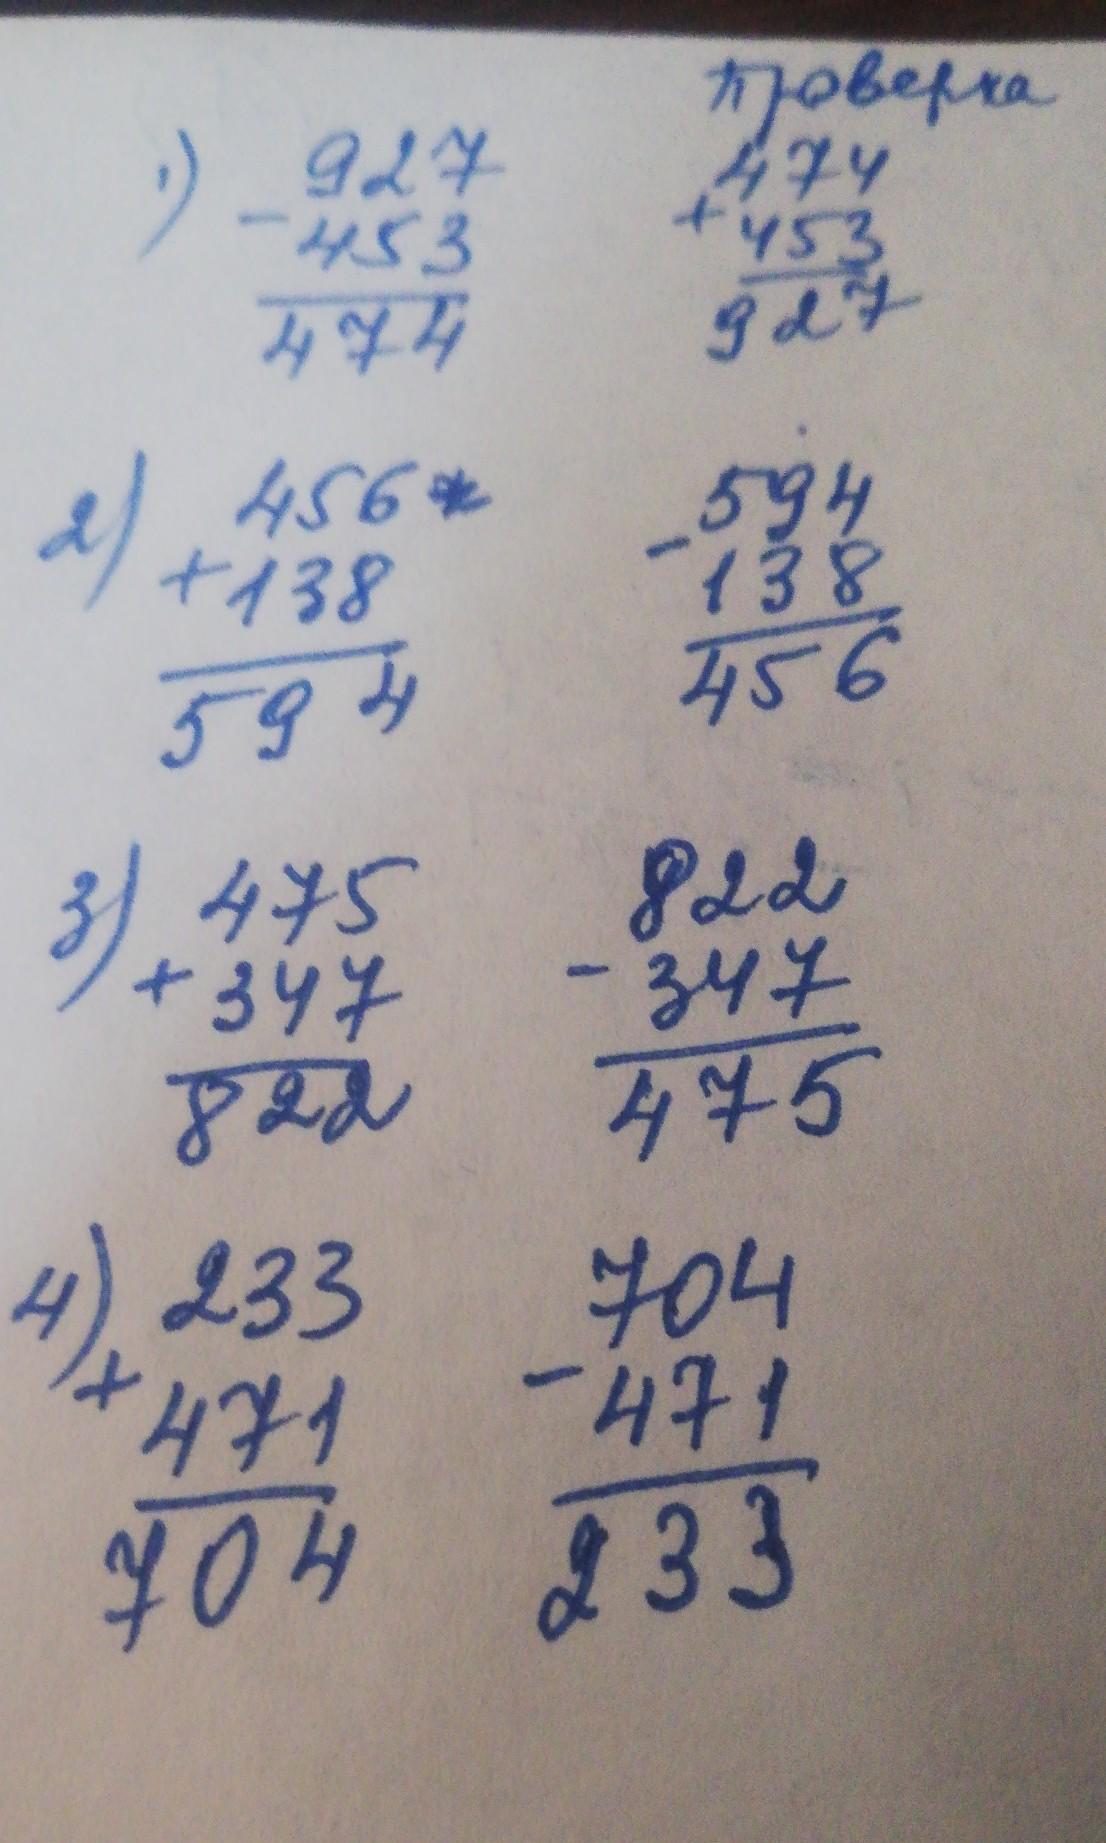 Проверка
1) 927
- 453
474
474
+ 453
927
2) 456
+ 138
594
594
- 138
456
3) 475
+ 347
822
822
- 347
475
4) 233
+ 471
704
704
- 471
233